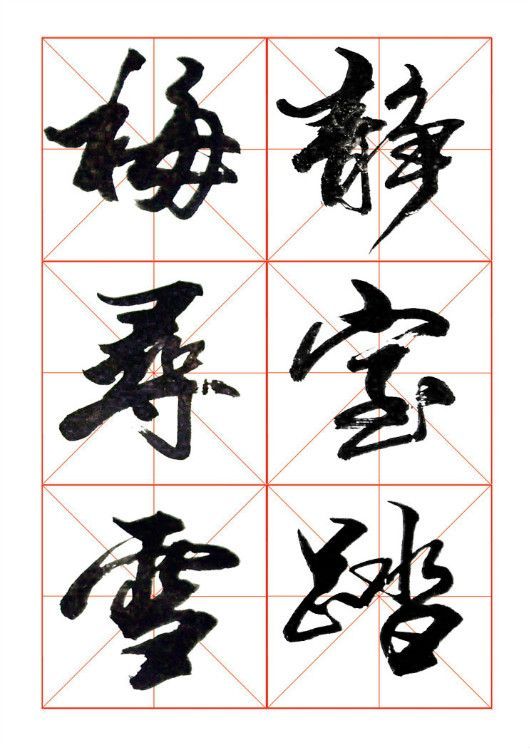 静室踏
梅尋雪